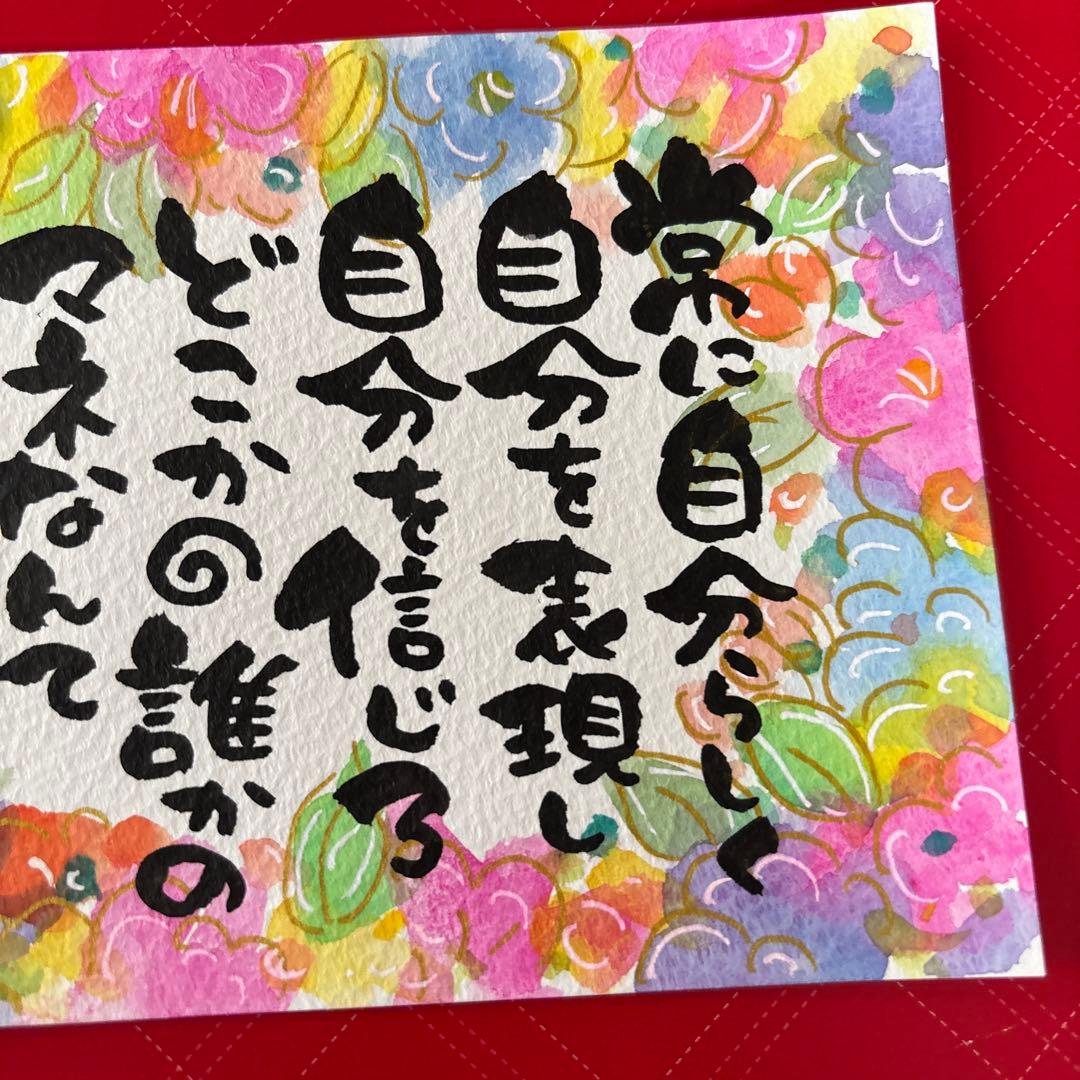 常に自分らしく
自分を表現し
自分を信じろ
どこかの誰かの
マネなんて